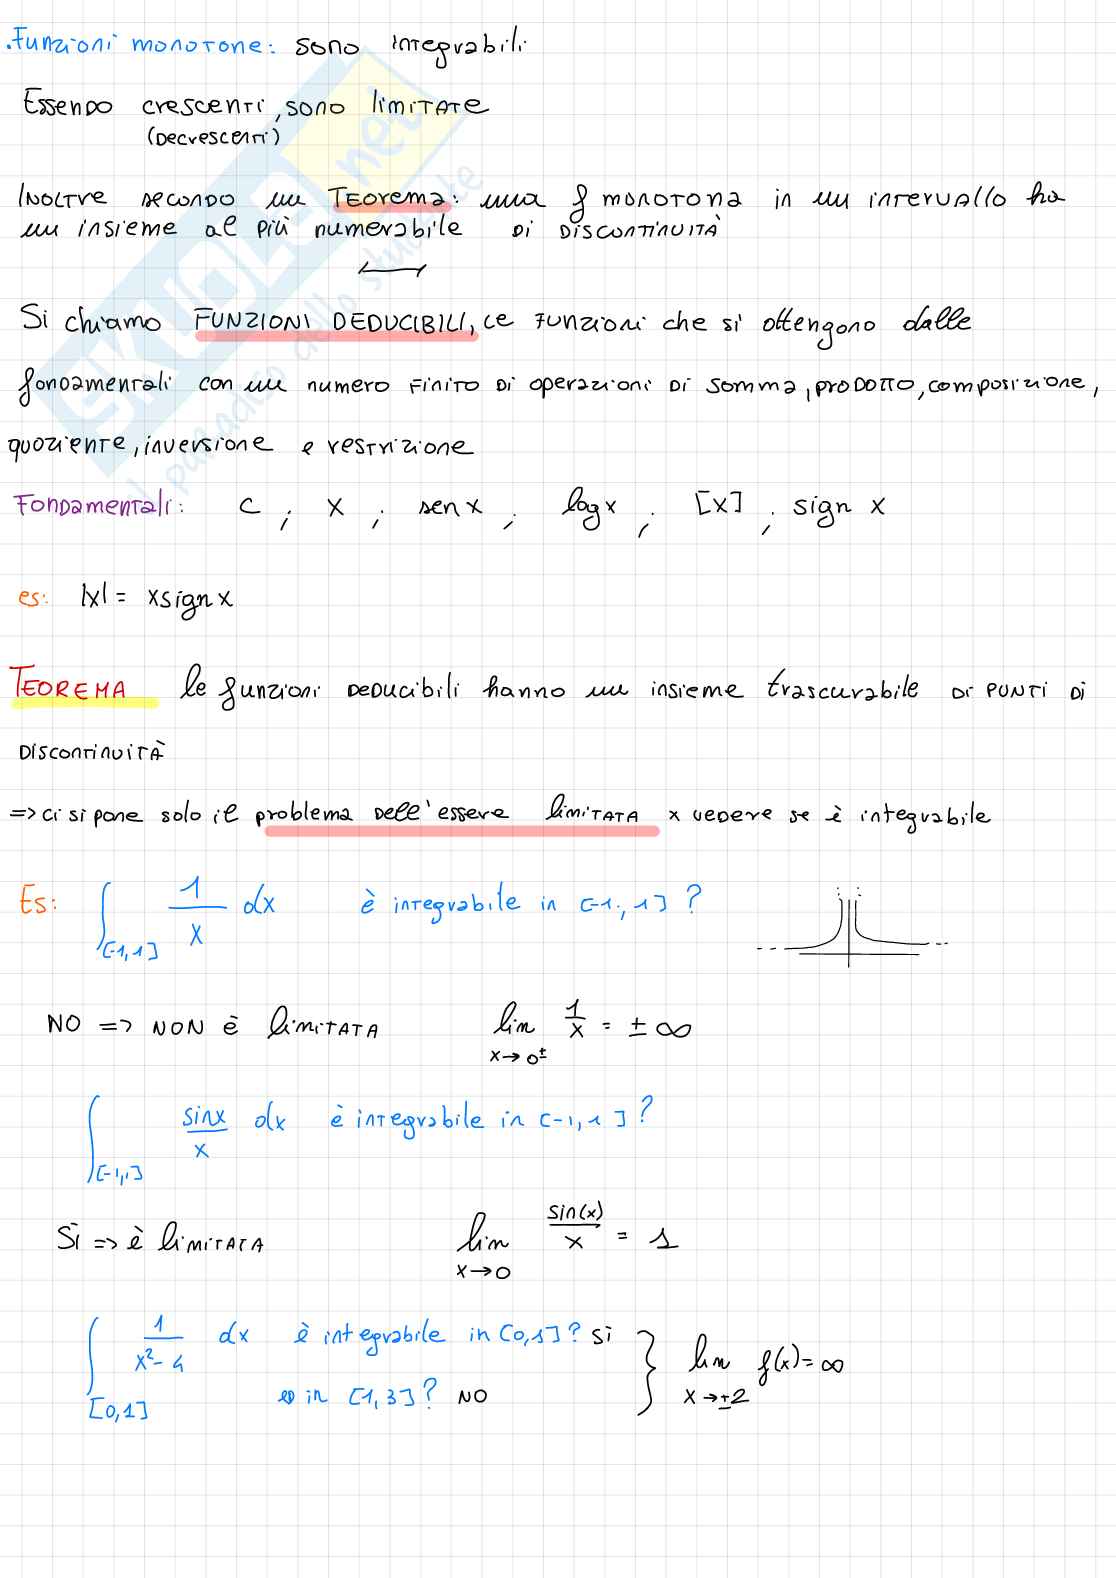 .Funzioni monotone: sono integrabili
Essendo crescenti, sono limitate
(decrescenti)
Inoltre secondo un Teorema: una f monotona in un intervallo ha
un insieme al più numerabile di discontinuità
Si chiamo FUNZIONI DEDUCIBILI, le funzioni che si ottengono dalle
fondamentali con un numero finito di operazioni di somma, prodotto, composizione,
quoziente, inversione e restrizione
Fondamentali: c ; x ; sen x ; log x ; [x] ; sign x
es: |x| = x sign x
TEOREMA le funzioni deducibili hanno un insieme trascurabile di punti di
discontinuità
=> ci si pone solo il problema dell'essere limitata x vedere se è integrabile
Es: ∫[-1,1] 1/x dx è integrabile in [-1,1]?
NO => NON è limitata lim x→0± 1/x = ±∞
∫[-1,1] sinx/x dx è integrabile in [-1,1]?
Sì => è limitata lim x→0 sin(x)/x = 1
∫[0,1] 1/x²-4 dx è integrabile in [0,1]? Sì
e in [1,3]? NO } lim x→±2 f(x)=∞
SKUOLA.net
il paradiso dello studente